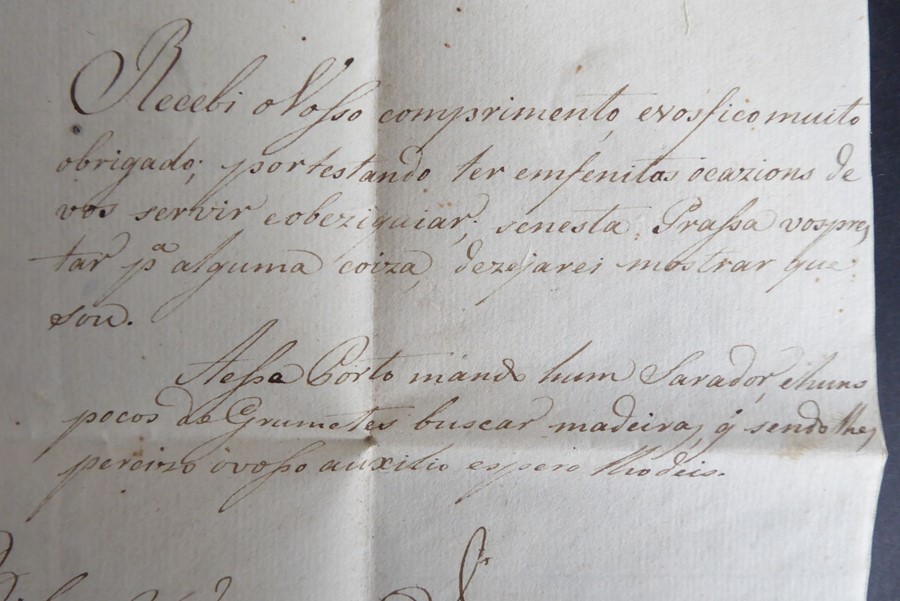 Recebi o Vosso comprimento, e vos fico muito
obrigado; portestando ter emfenitas ocazions de
vos servir e obeziquiar; se nesta Prassa vos pres
tar p.ª alguma coiza, dezejarei mostrar que
sou.
Aessa Porto mando hum Sarador, e huns
pocos de Grumetes buscar madeira, q̃ sendolhe,
percizo o vosso auxilio espero lho deis.